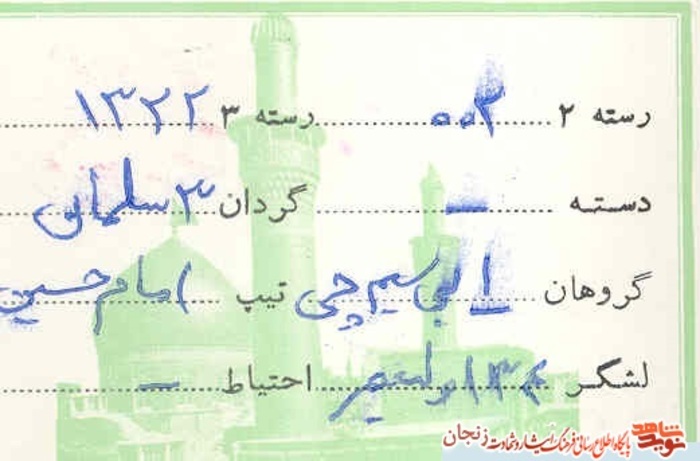 رسته ۲ ۰۰۲ رسته ۳ ۱۳۲۲
دسته — گردان ۳ سلمان
گروهان ۱ بی سیم چی تیپ امام حسین
لشگر احتیاط —
نوید شاهد
پایگاه اطلاع رسانی فرهنگ ایثار و شهادت زنجان